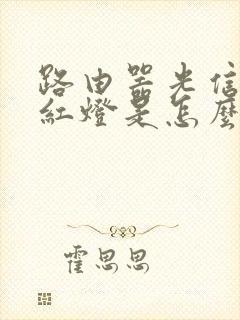 路由器光信
紅燈是怎麼
霍思思